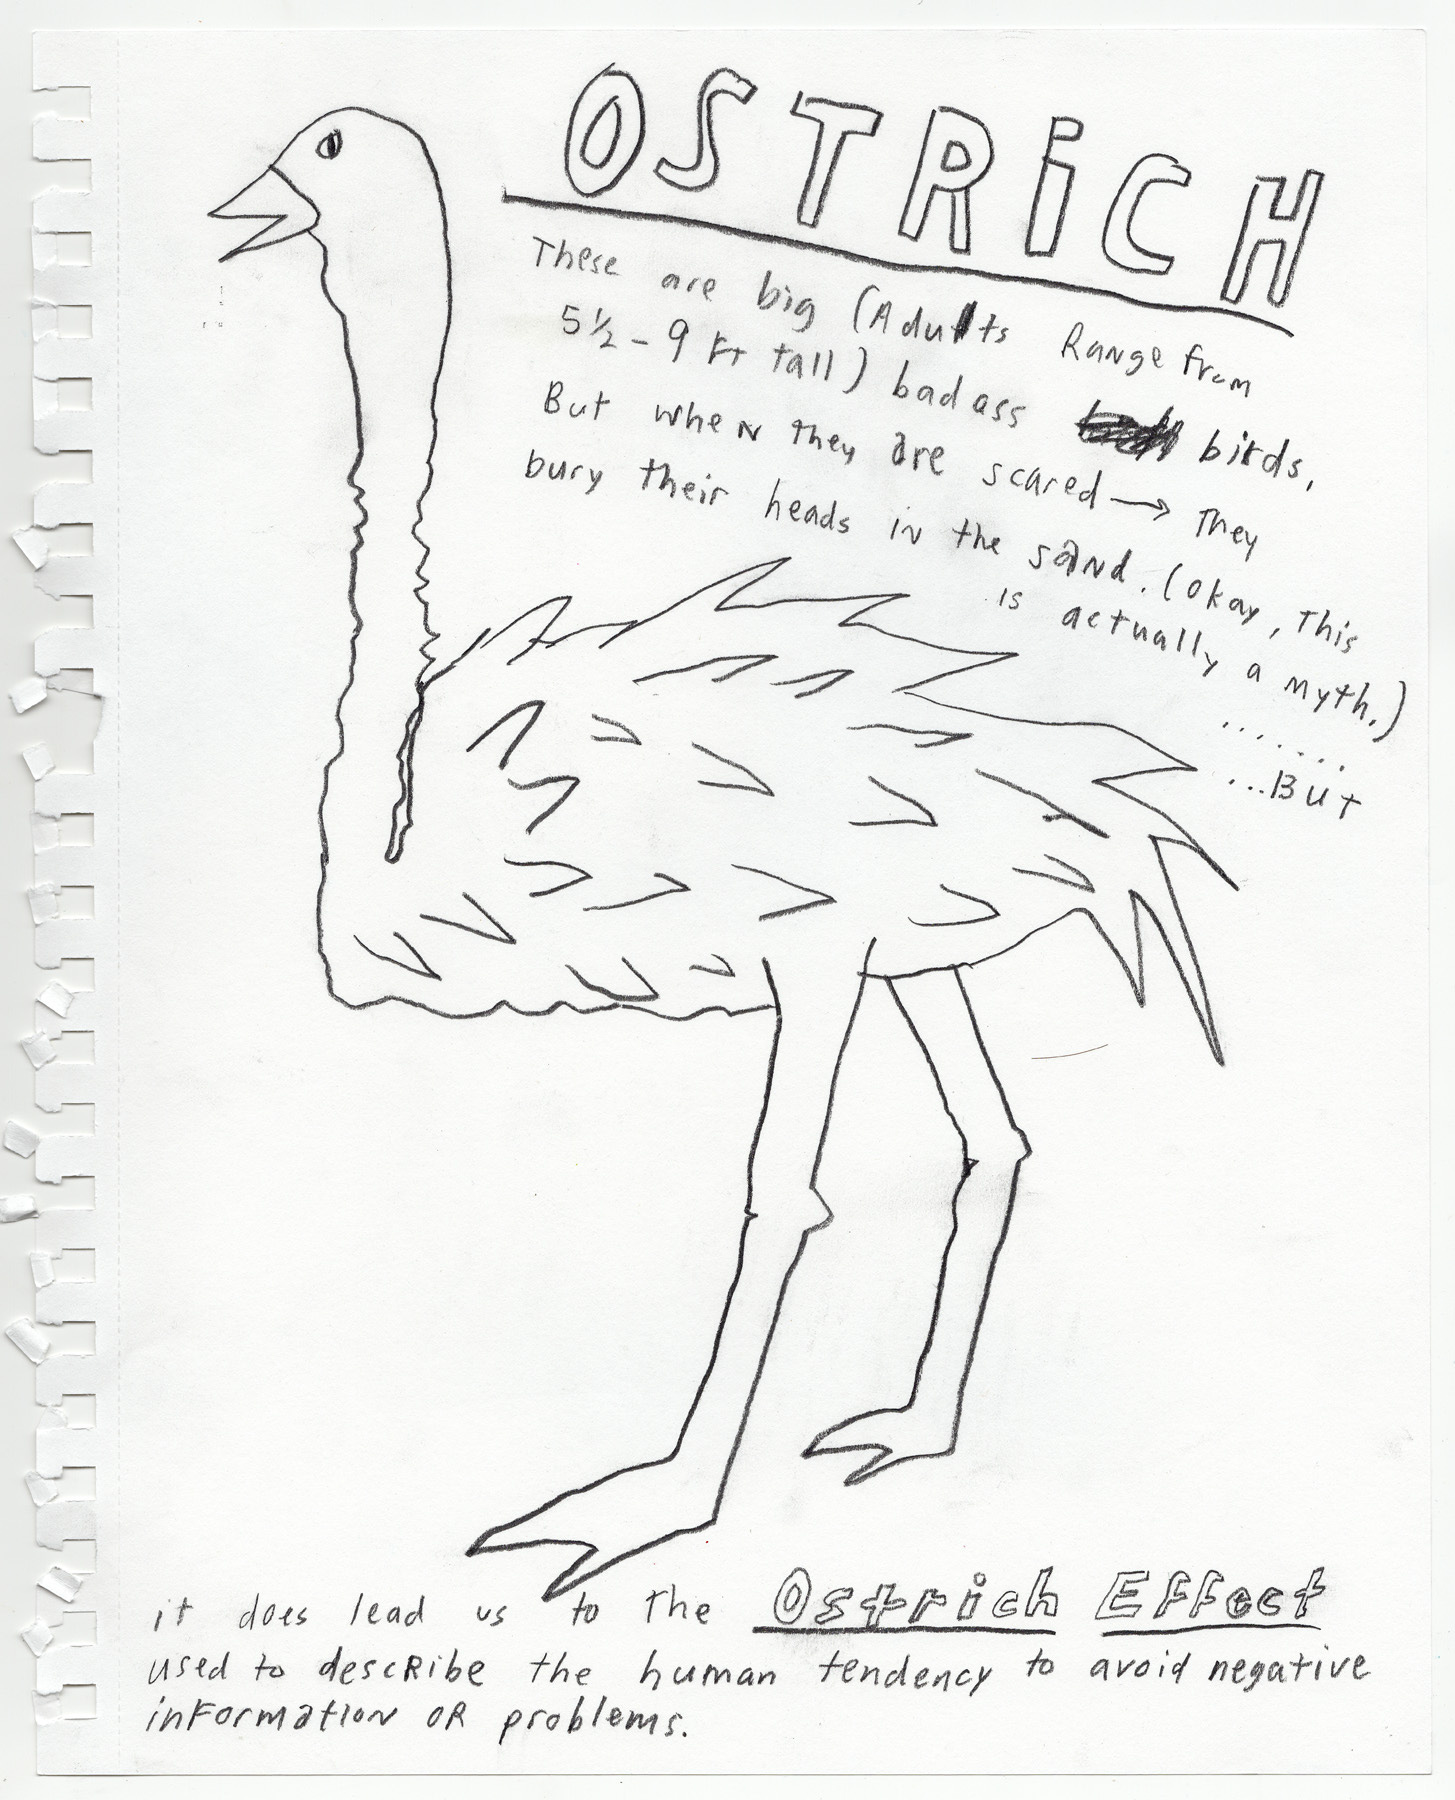 OSTRiCH
These are big (Adults Range from
5½ - 9 Ft tall) badass birds,
But wheN they are scared → They
bury their heads iN the saNd. (okay, This
is actually a myth.)
.......
...BUt
it does lead us to the Ostrich Effect
used to descRibe the human tendency to avoid negative
inFormatioN OR problems.